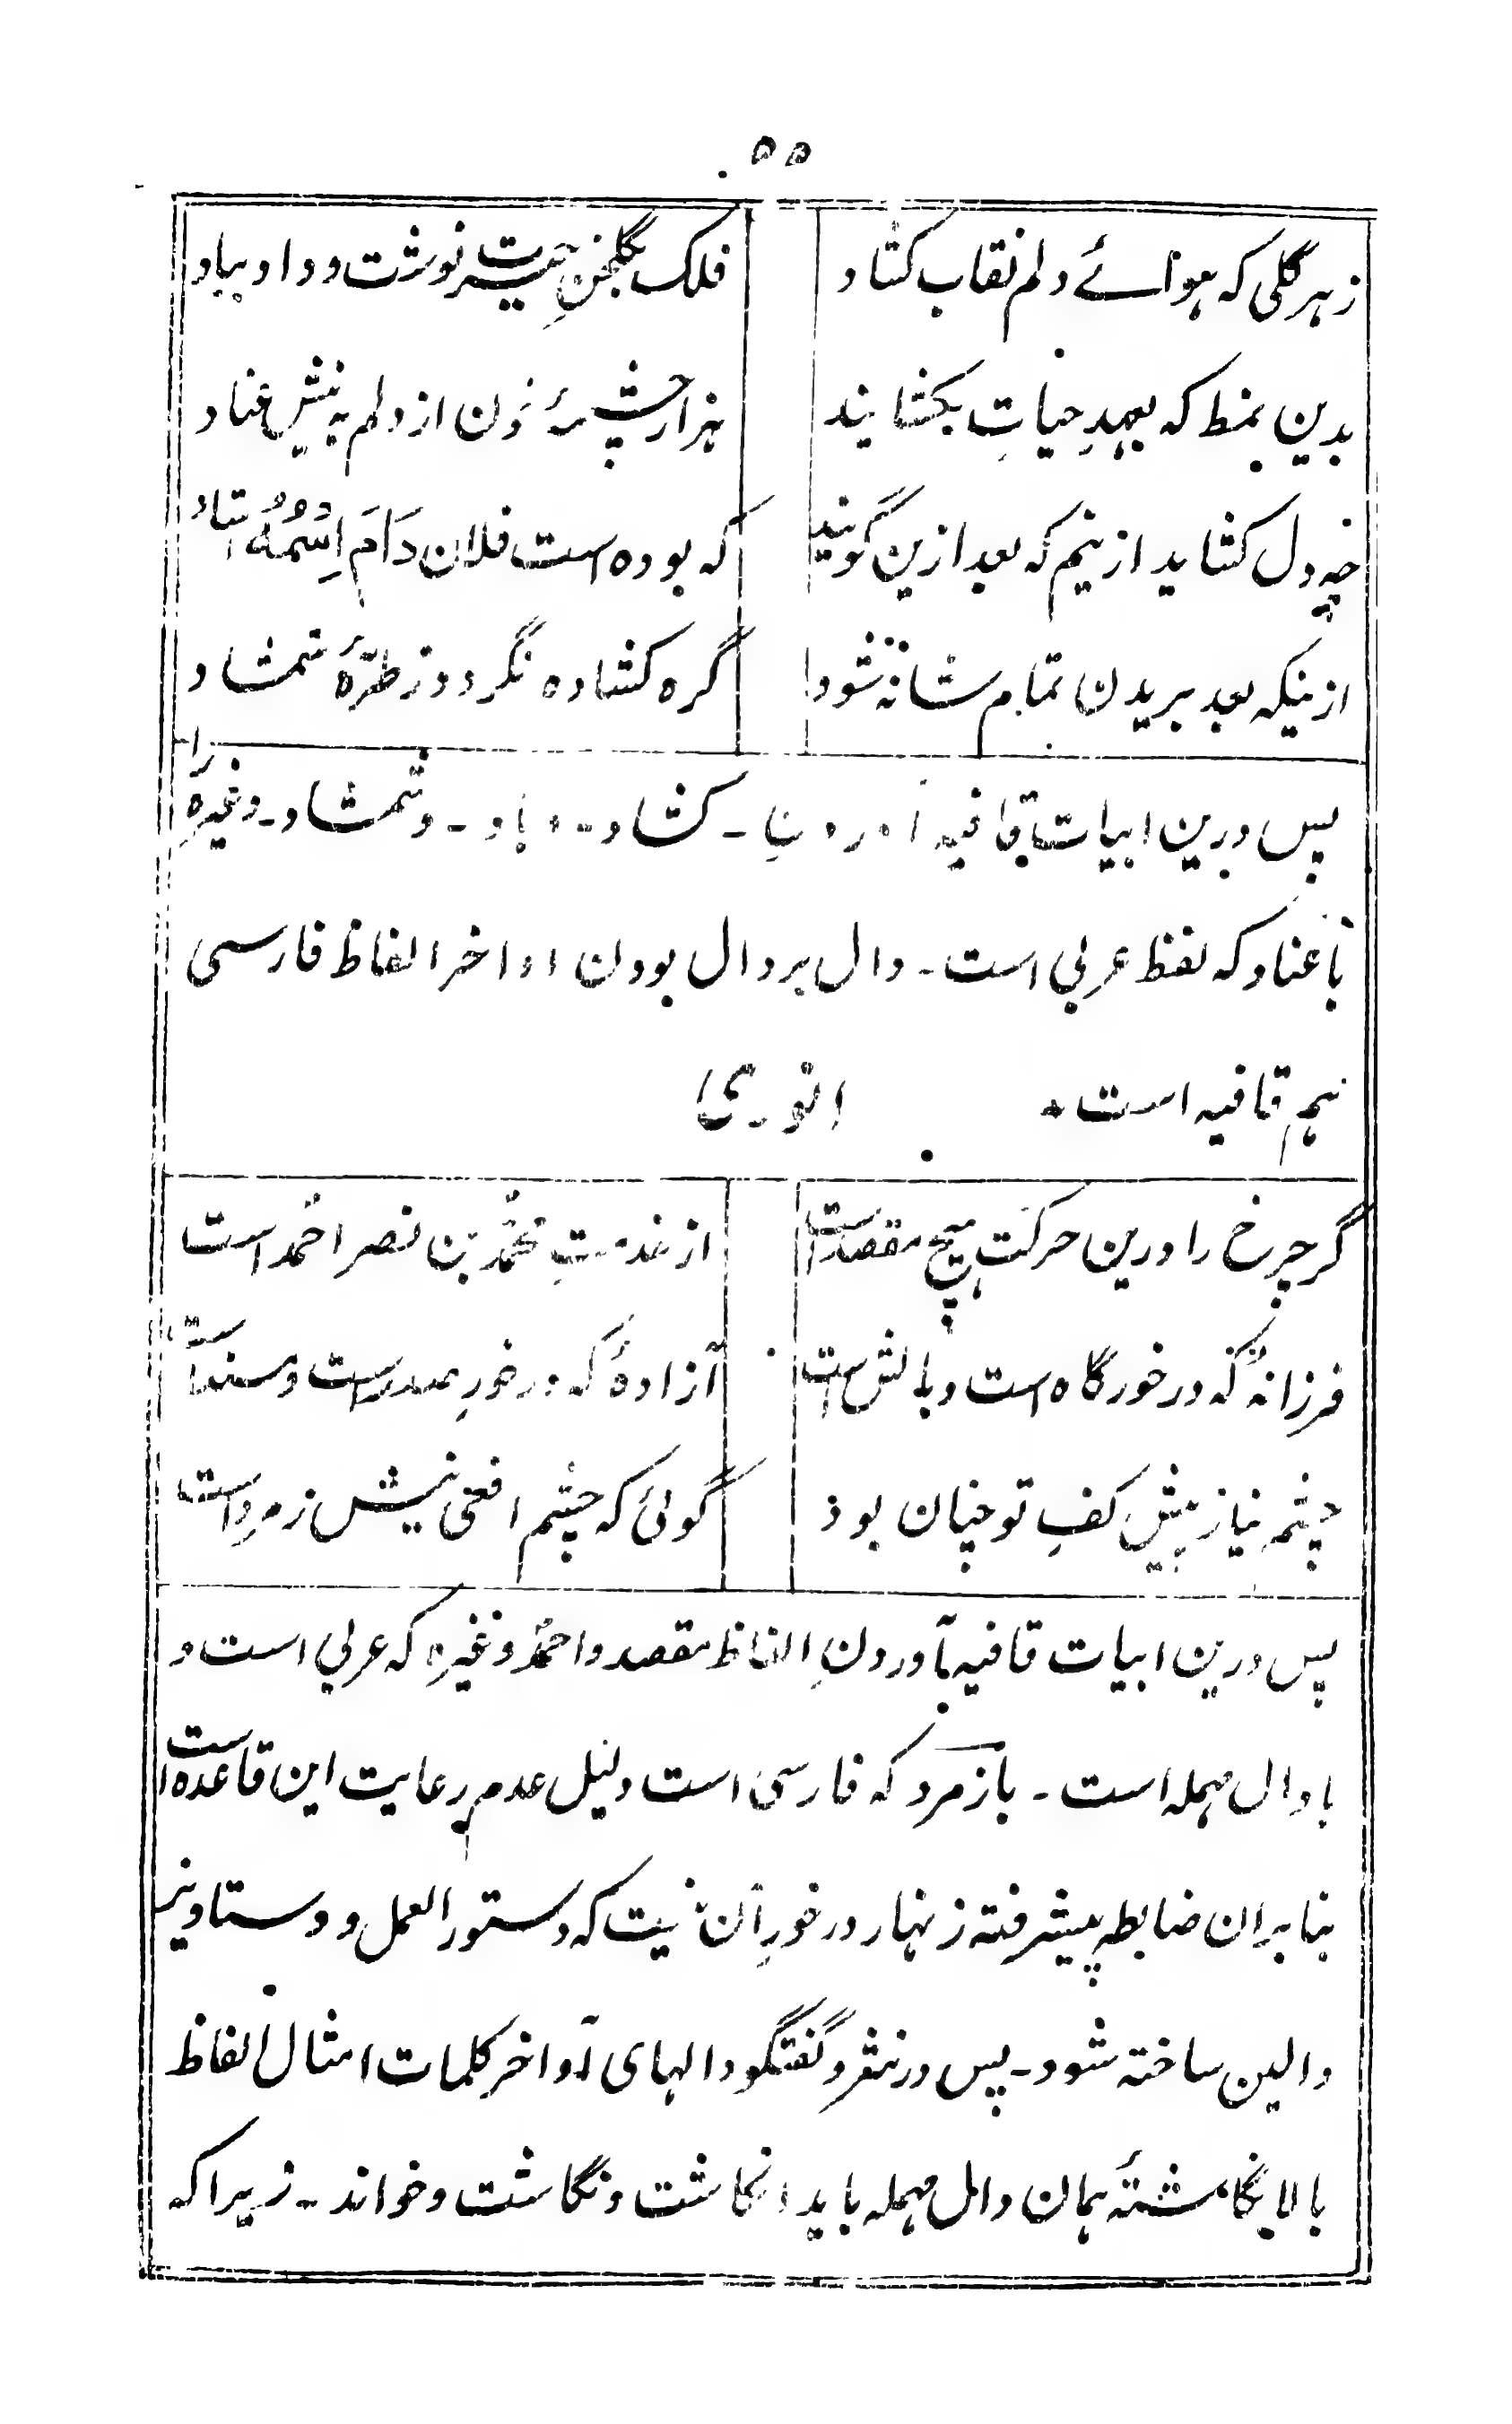 ۵۵
زہر گلی کہ ہوائے دلم نقاب کشاد
فلک بگلخنِ حیرت نوشت و داد بباد
بدین نمط کہ بعہدِ حیات بکشایند
ہزار چشمۂ خون از دلم بہ نیش عناد
چہ دل کشاید ازینم کہ بعد ازین گویند
کہ بودہ است فلان دَامَ اِسْمُہُ استاد
ازینکہ بعد بریدن تمام شانہ شود
گرہ کشادہ نگردد ز طرّۂ شمشاد
پس درین ابیات قافیہ آوردن کشاد - و باد - و شمشاد - وغیرہ را
با عناد کہ لفظ عربی است - دال بر دال بودن اواخر الفاظ فارسی
ہم قافیہ است۔
انوری
گر چرخ را درین حرکت ہیچ مقصد است
از خدمتِ محمّد بن نصر احمد است
فرزانۂ کہ در خور گاہ است و بالش است
آزادۂ کہ در خورِ صدر است و مسند است
چشم نیاز پیش کفِ تو چنان بود
گوئی کہ چشم افعی پیش زمرد است
پس درین ابیات قافیہ آوردنِ الفاظ مقصد و احمد وغیرہ کہ عربی است و
با دال مہملہ است - با زمرد کہ فارسی است دلیل عدم رعایت این قاعدہ است
بنابران ضابطہ پیشرفتہ زنہار در خورِ آن نیست کہ دستور العمل و دستاویز
والین ساختہ شود - پس در نثر و گفتگو دالہای اواخر کلمات امثال الفاظ
بالا نگاشتۂ ہمان دال مہملہ باید انگاشت و نگاشت و خواند - زیرا کہ